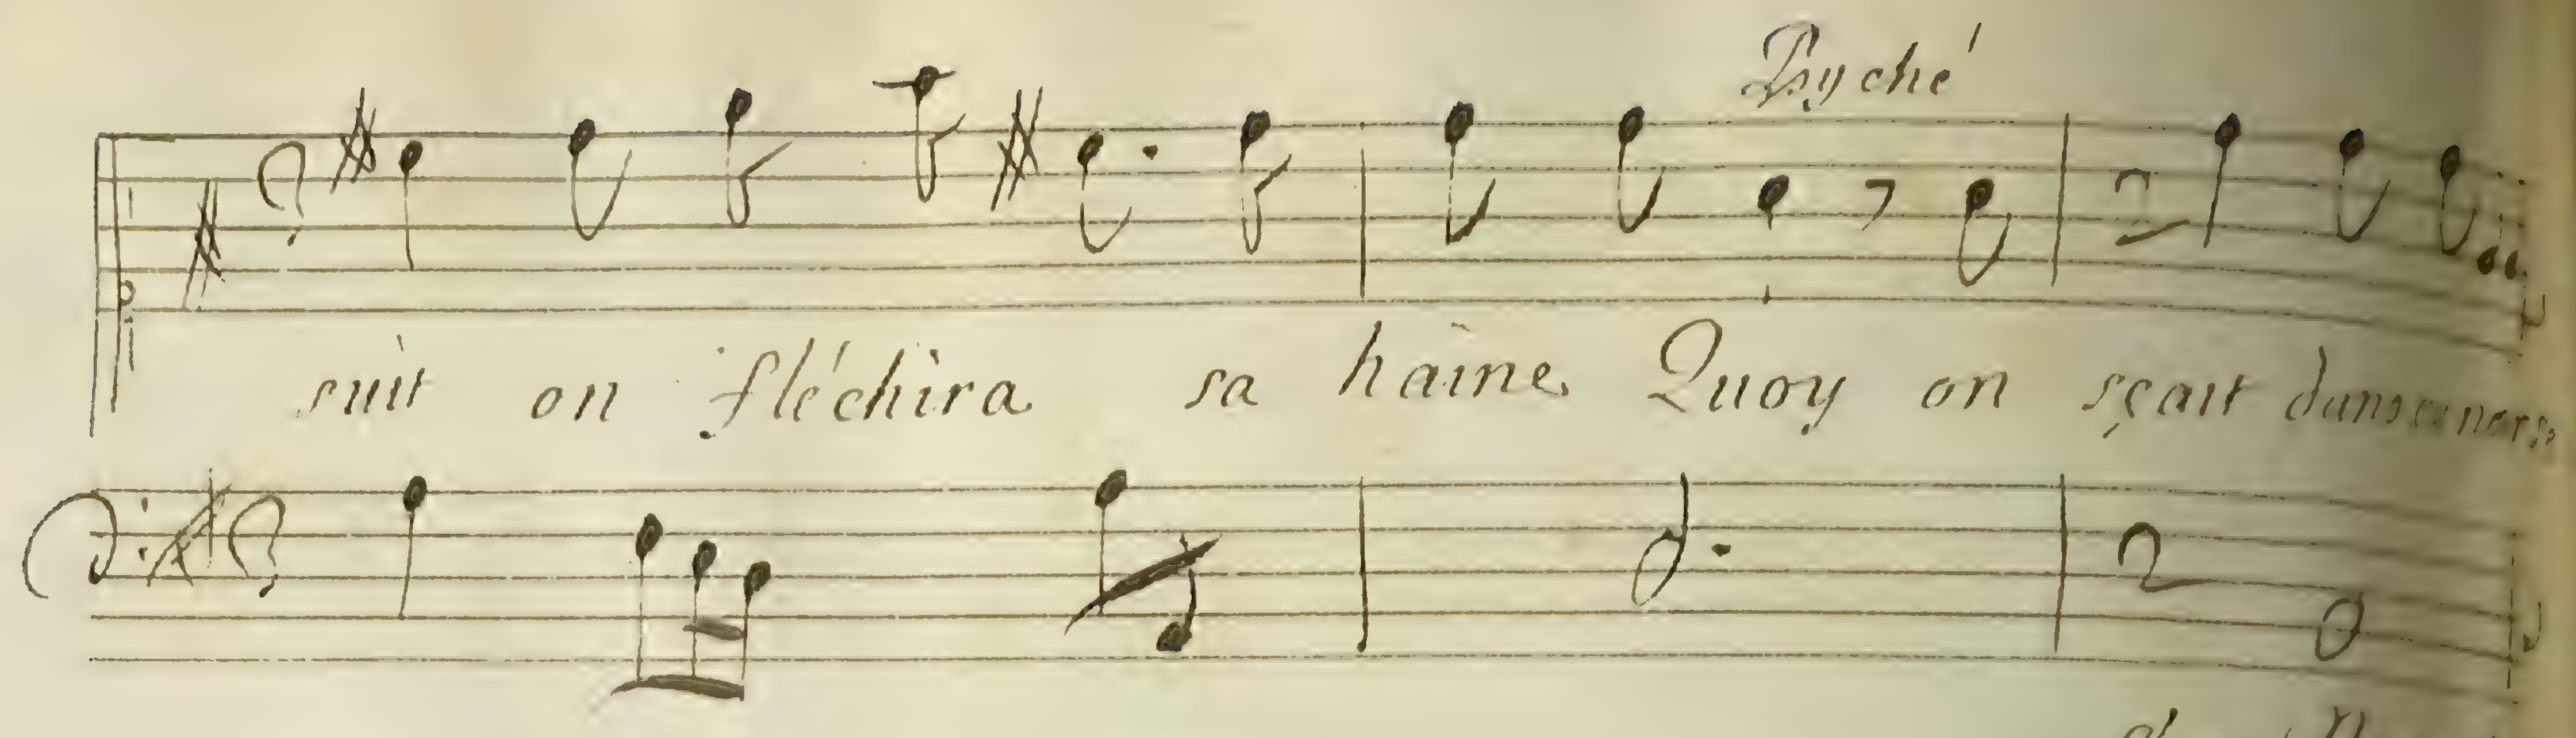 Psyché
suit on fléchira sa haine Quoy on sçait dans